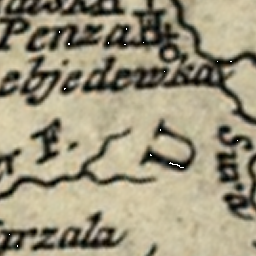 Penza
ebjedewka
F.
U
Sura
arzala